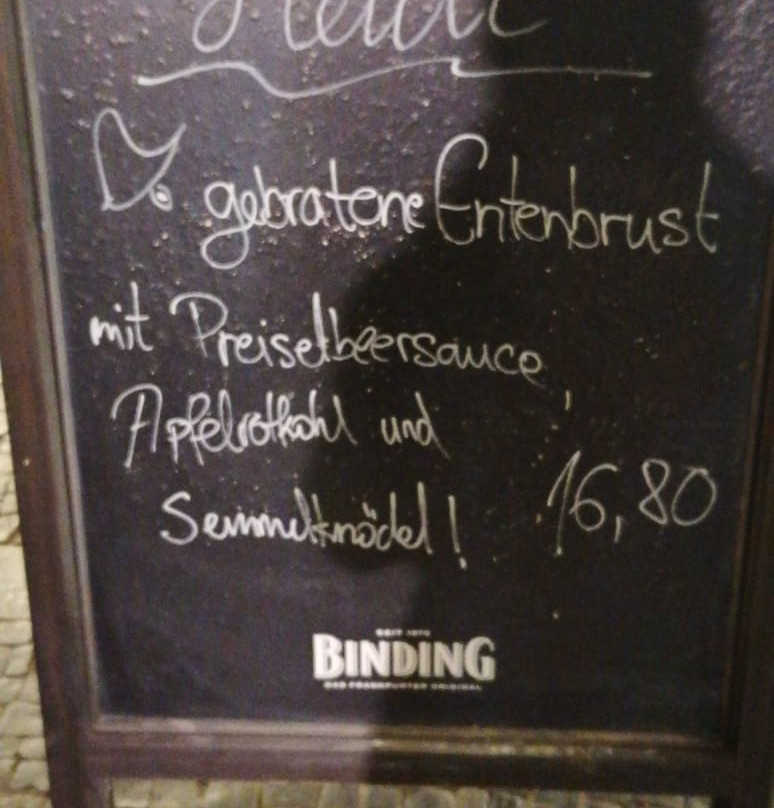 gebratene Entenbrust
mit Preiselbeersauce,
Apfelrotkohl und
Semmelknödel! 16,80
SEIT 1870
BINDING
DAS FRANKFURTER ORIGINAL